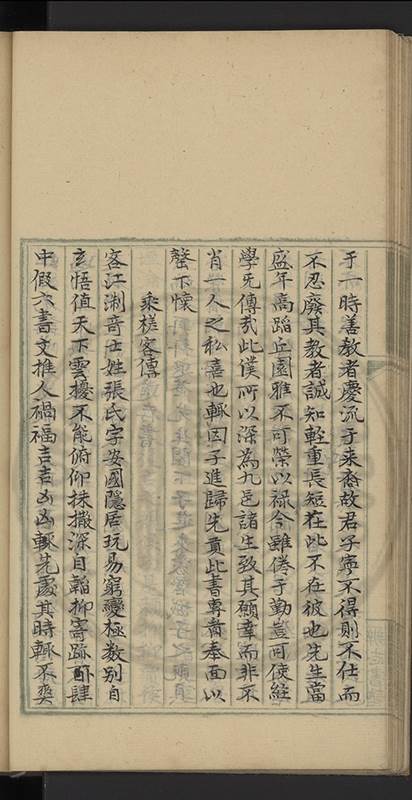 于一時善教者慶流于來裔故君子寧不得則不仕而
不忍廢其教者誠知輊重長短在此不在彼也先生當
盛年高蹈丘園雅不可榮以祿今雖倦于勤豈可使絰
學旡傳㢤此僕所以深為九邑諸生致其願幸而非不
肖一人之私喜也輙因子進歸先貢此書專耑奉面以
罄下懷
乘槎客傳
客江淛竒士姓張氏字安國隱居玩易窮變極數別自
玄悟值天下雲擾不能俯仰抹摋深自韜抑寄跡卧肆
中假六書文推人禍福吉吉凶凶輙先處其時輙不爽